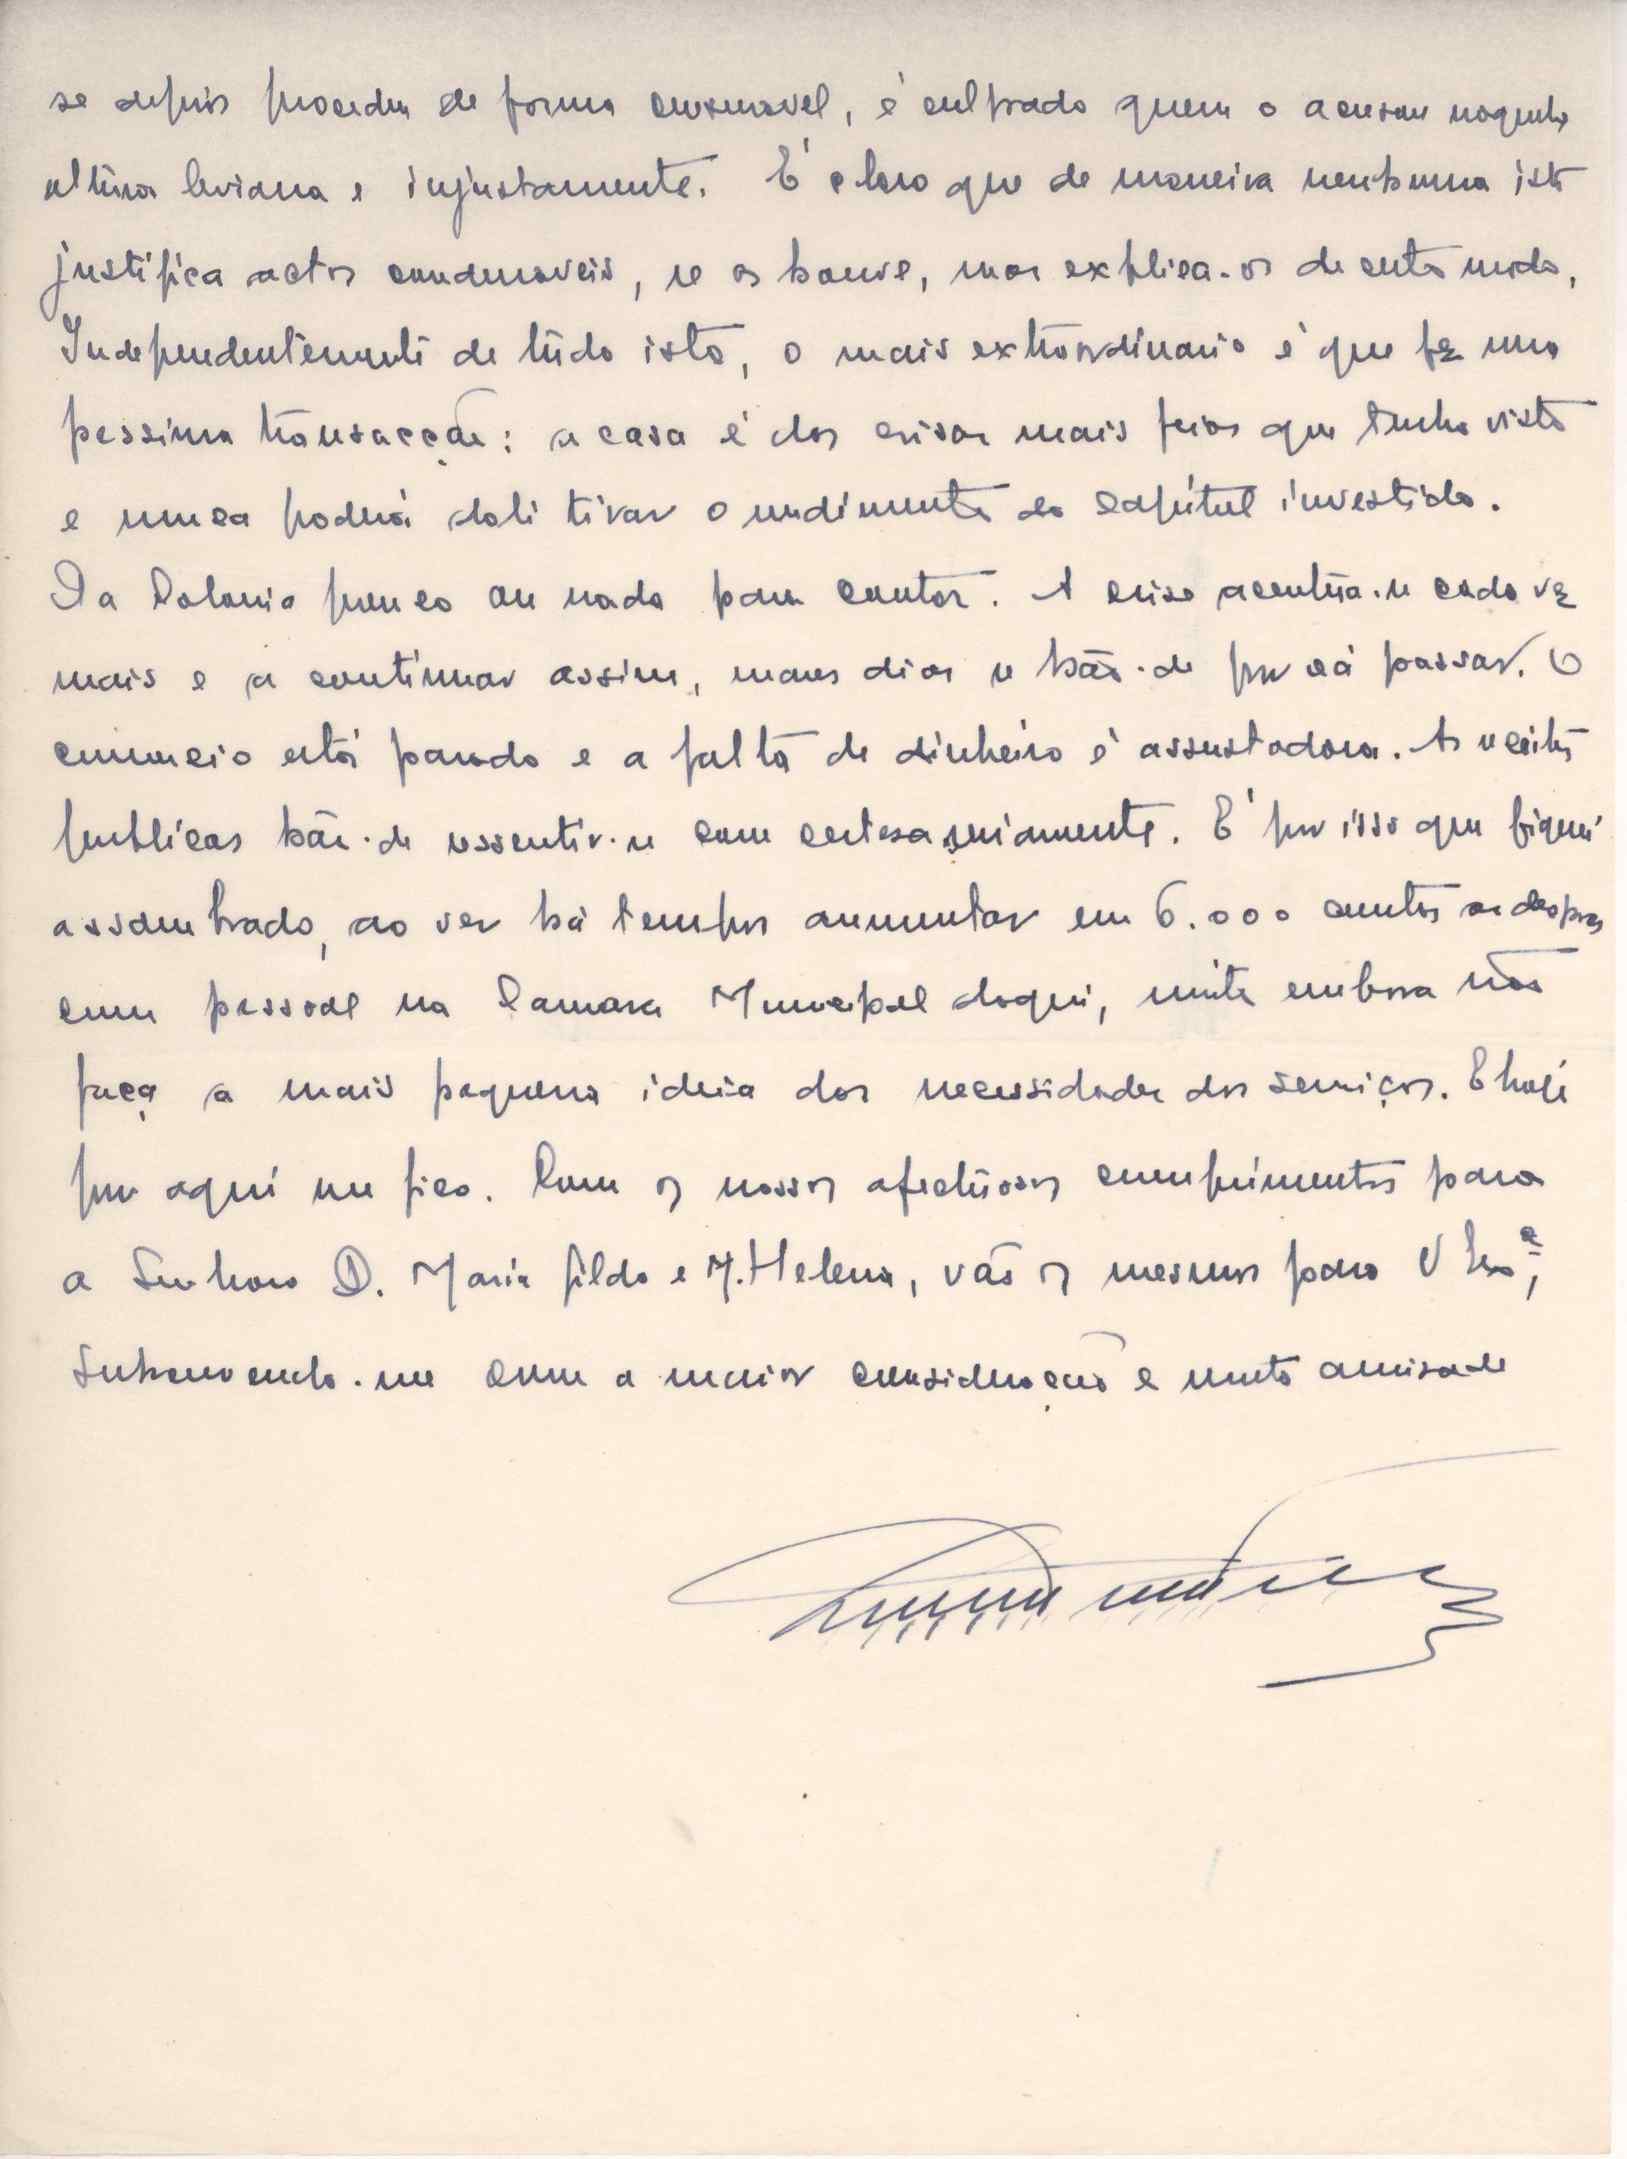 se depois procedeu de forma censuravel, é culpado quem o acusou naquela
altura leviana e injustamente. É claro que de maneira nenhuma isto
justifica actos condenaveis, se os houve, mas explica-os de certo modo,
Independentemente de tudo isto, o mais extraordinario é que fez uma
pessima transacção: a casa é das coisas mais feias que tenho visto
e nunca poderá dali tirar o rendimento do capital investido.
Da Colonia pouco ou nada para contar. A crise acentua-se cada vez
mais e a continuar assim, maus dias se hão-de por cá passar. O
comercio está parado e a falta de dinheiro é assustadora. As receitas
publicas hão-de ressentir-se com certesa seriamente. É por isso que fiquei
assombrado, ao ver há tempos aumentar em 6.000 contos as despesas
com pessoal na Camara Municipal daqui, muito embora não
faça a mais pequena ideia das necessidades dos serviços. E hoje
por aqui me fico. Com os nossos afectuosos cumprimentos para
a Senhora D. Maria Gilda e M. Helena, vão os mesmos para V Exª,
Subscrevendo-me com a maior consideração e muita amisade